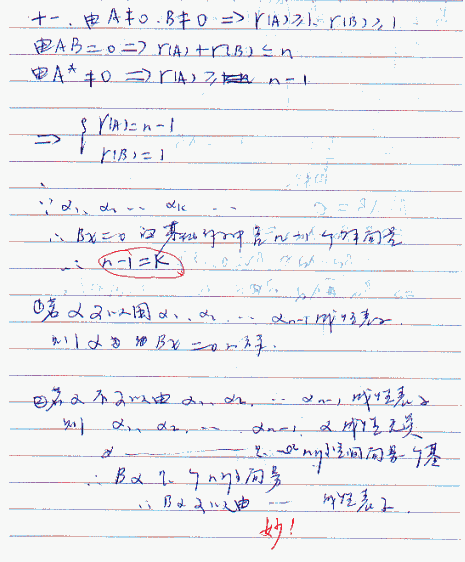 十一. 由A≠0. B≠0 => r(A)≥1. r(B)≥1
由AB=0 => r(A)+r(B)≤n
由A*≠0 => r(A)≥ n-1
=> { r(A)=n-1
r(B)=1
∵ α1、α2 … αk …
∴ Bx=0 的基础解系中含 n-1 个解向量
∴ n-1=k
①若α可以由α1、α2、… αn-1线性表示
则α为 Bx=0的解.
②若α不可以由α1、α2、… αn-1线性表示
则 α1、α2、… αn-1、α线性无关
α 是 n维空间向量个基
∴ Bα 是个n维向量
∴ Bα可以由 … 线性表示.
妙!